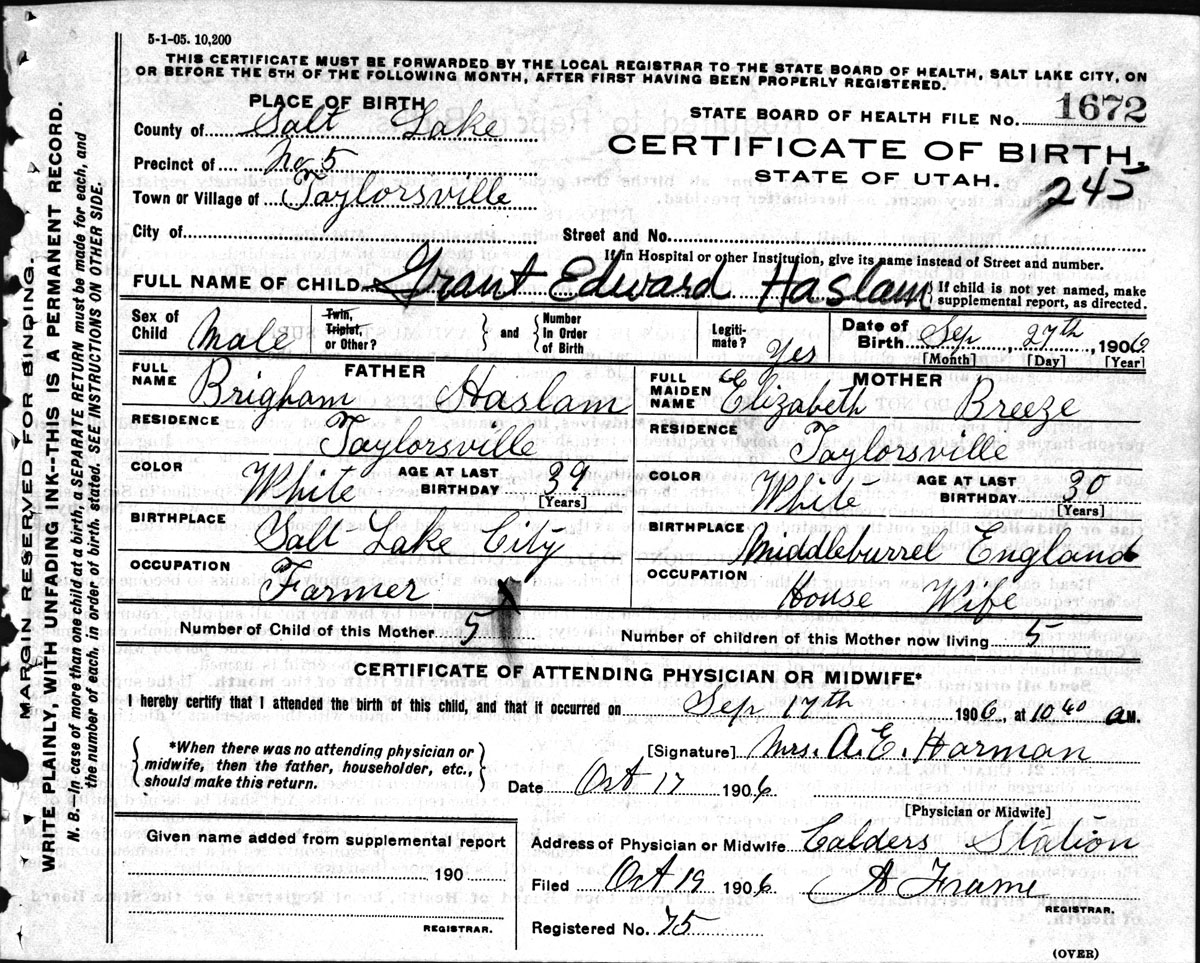 5-1-05. 10,200
THIS CERTIFICATE MUST BE FORWARDED BY THE LOCAL REGISTRAR TO THE STATE BOARD OF HEALTH, SALT LAKE CITY, ON
OR BEFORE THE 5TH OF THE FOLLOWING MONTH, AFTER FIRST HAVING BEEN PROPERLY REGISTERED.
PLACE OF BIRTH
STATE BOARD OF HEALTH FILE No. 1672
County of Salt Lake
CERTIFICATE OF BIRTH,
Precinct of No 5
STATE OF UTAH.
245
Town or Village of Taylorsville
City of Street and No.
If in Hospital or other Institution, give its name instead of Street and number.
FULL NAME OF CHILD Grant Edward Haslam { If child is not yet named, make
supplemental report, as directed.
Sex of Child Male
Twin, Triplet, or Other?
and
Number In Order of Birth
Legiti-mate? Yes
Date of Birth Sep 27th, 1906
[Month] [Day] [Year]
FATHER
FULL NAME Brigham Haslam
RESIDENCE Taylorsville
COLOR White AGE AT LAST BIRTHDAY 39
[Years]
BIRTHPLACE Salt Lake City
OCCUPATION Farmer
MOTHER
FULL MAIDEN NAME Elizabeth Breeze
RESIDENCE Taylorsville
COLOR White AGE AT LAST BIRTHDAY 30
[Years]
BIRTHPLACE Middleburrel England
OCCUPATION House Wife
Number of Child of this Mother 5 Number of children of this Mother now living 5
CERTIFICATE OF ATTENDING PHYSICIAN OR MIDWIFE*
I hereby certify that I attended the birth of this child, and that it occurred on Sep 17th 1906, at 10.40 a M.
{ *When there was no attending physician or
midwife, then the father, householder, etc.,
should make this return. }
[Signature] Mrs. A. E. Harman
Date Oct 17 1906
[Physician or Midwife]
Given name added from supplemental report
190
REGISTRAR.
Address of Physician or Midwife Calders Station
Filed Oct 19 1906 A Frame
REGISTRAR.
Registered No. 75
(OVER)
MARGIN RESERVED FOR BINDING
WRITE PLAINLY, WITH UNFADING INK--THIS IS A PERMANENT RECORD.
N. B.—In case of more than one child at a birth, a SEPARATE RETURN must be made for each, and
the number of each, in order of birth, stated. SEE INSTRUCTIONS ON OTHER SIDE.